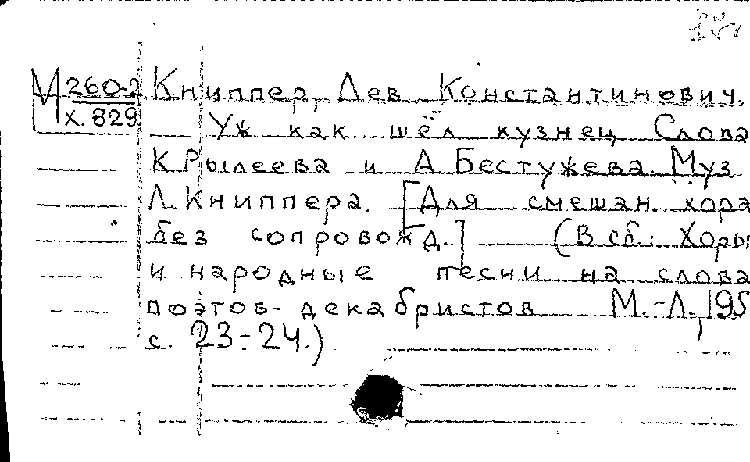 М 260-2 Книппер, Лев Константинович.
Х. 829 Уж как шёл кузнец Слова
К Рылеева и А Бестужева. Муз
Л. Книппера. [Для смешан. хора
без сопровожд.] (В сб.: Хоры
и народные песни на слова
поэтов-декабристов М.-Л., 195
с. 23-24.)